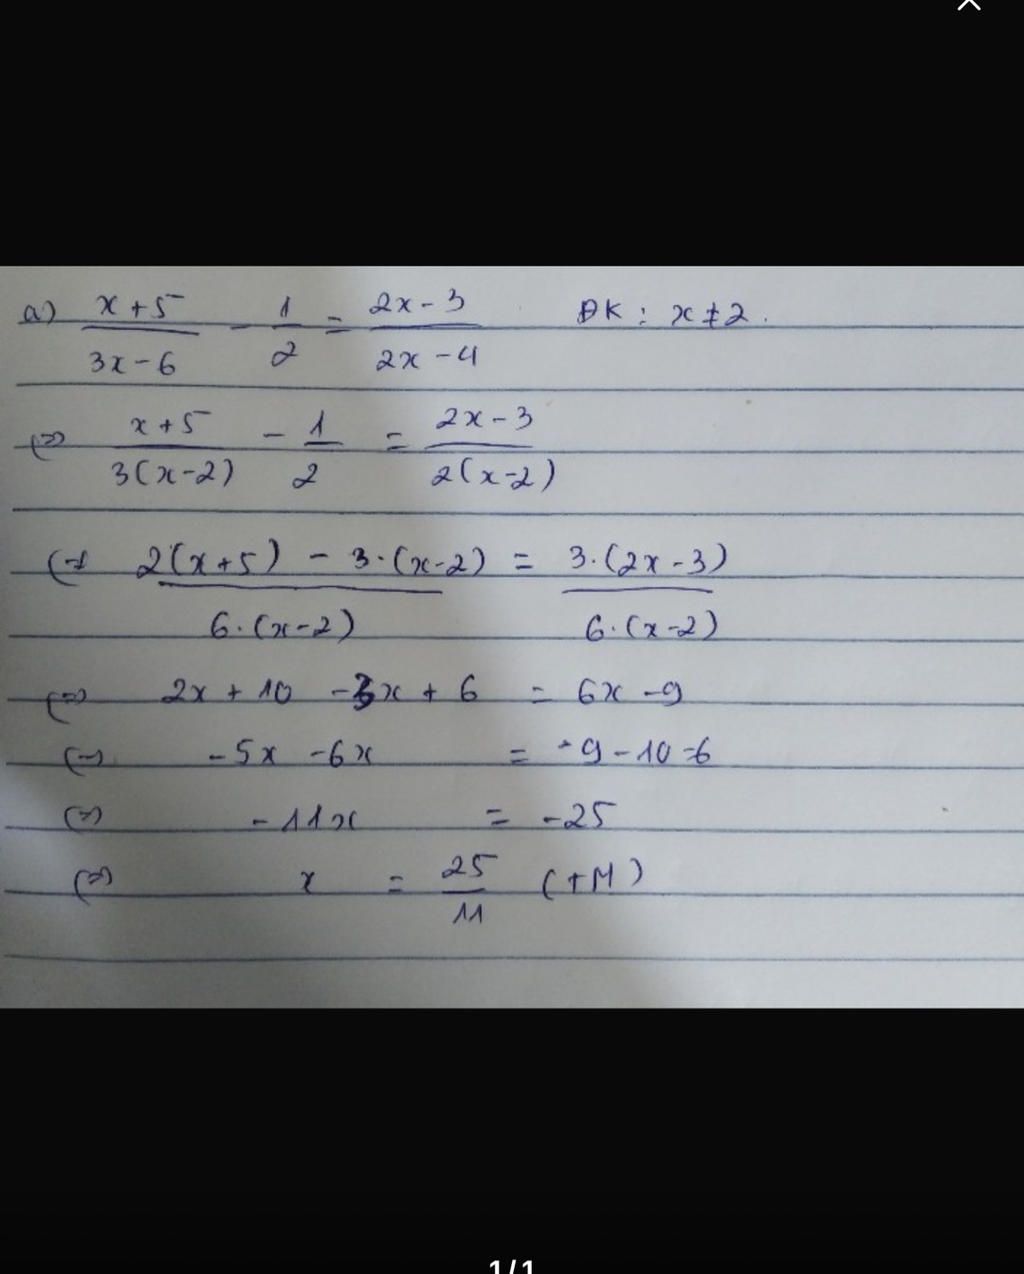 a) (x + 5)/(3x - 6) - 1/2 = (2x - 3)/(2x - 4) ĐK : x ≠ 2.
(=) (x + 5)/(3(x-2)) - 1/2 = (2x - 3)/(2(x-2))
(=) (2(x+5) - 3.(x-2))/(6.(x-2)) = (3.(2x-3))/(6.(x-2))
(=) 2x + 10 - 3x + 6 = 6x - 9
(=) -5x - 6x = -9 - 10 - 6
(=) -11x = -25
(=) x = 25/11 (TM)
1/1